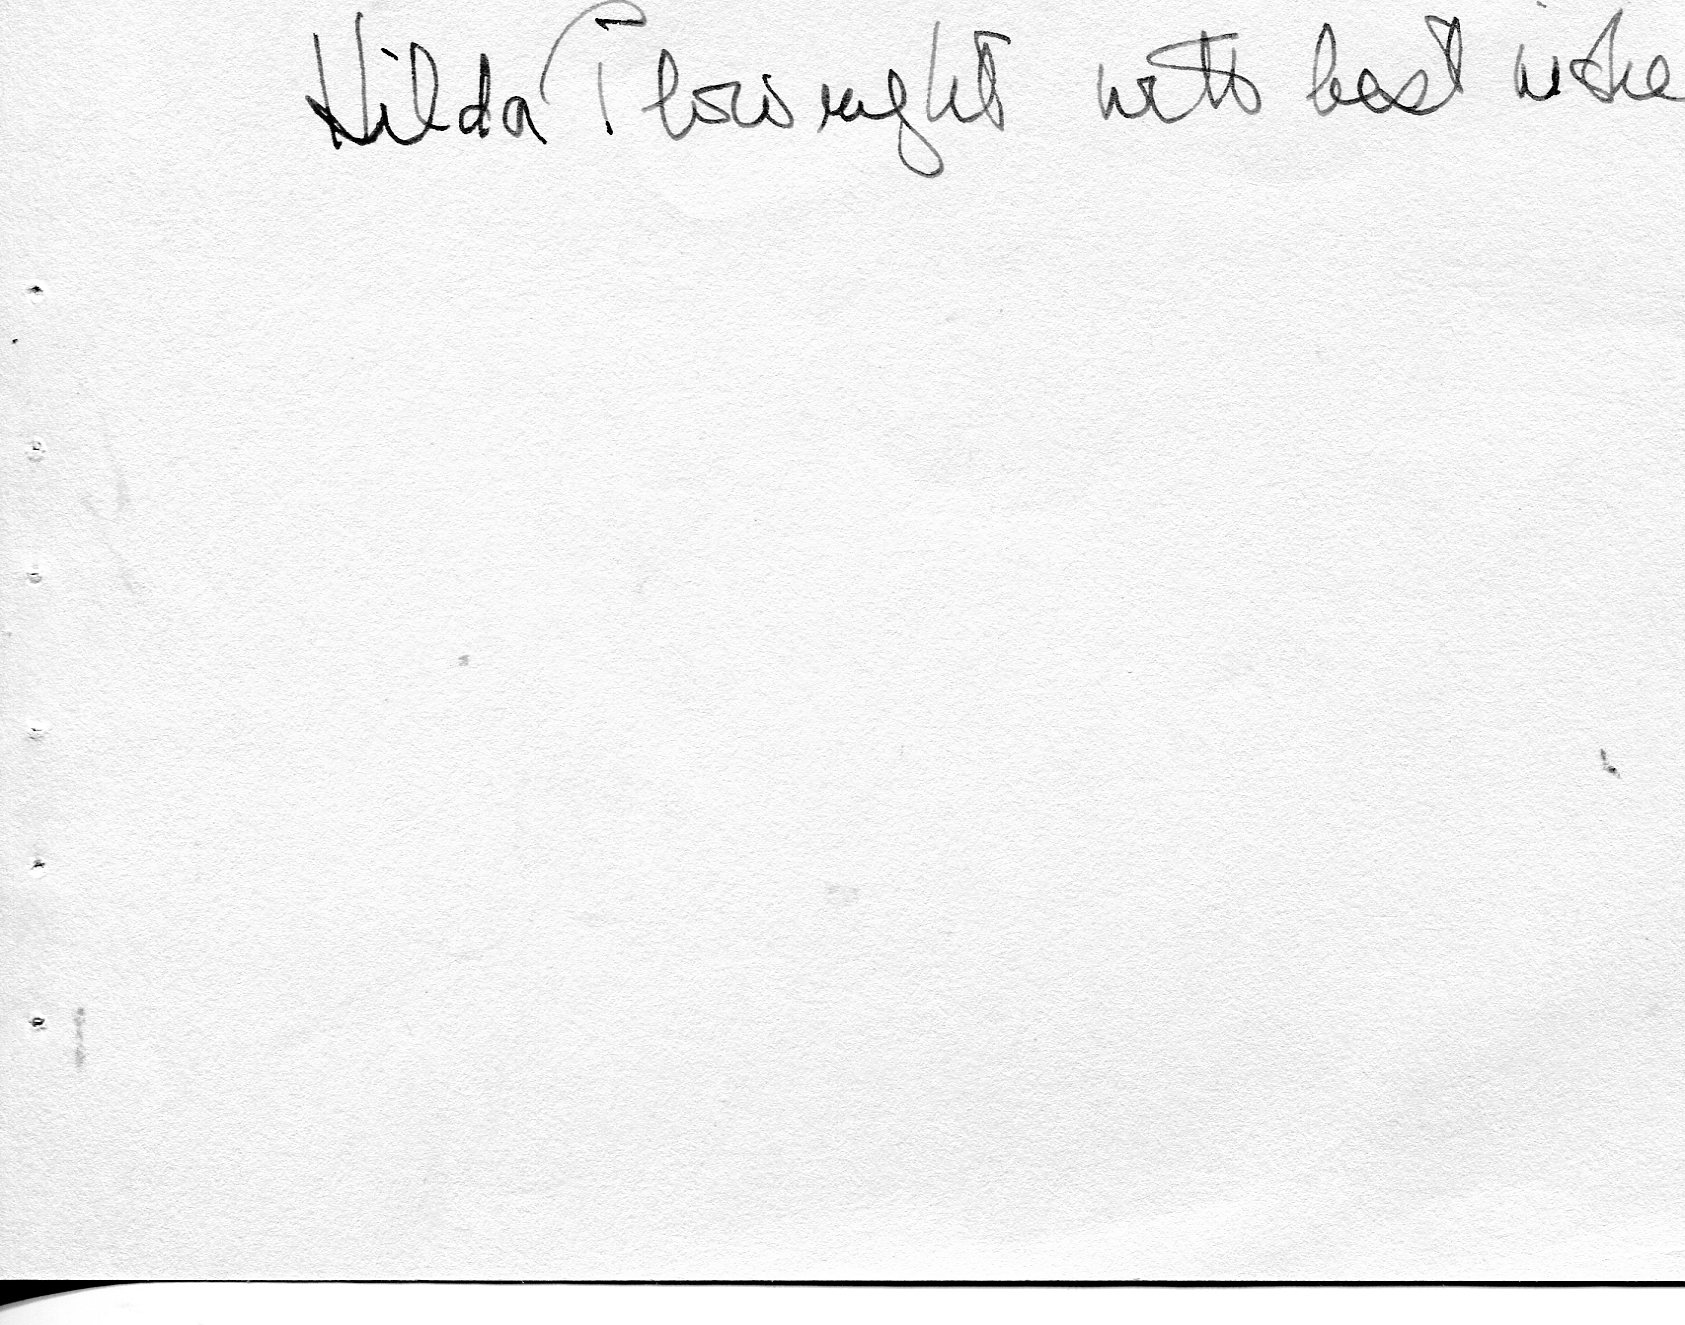 Hilda Plowright with best wishe